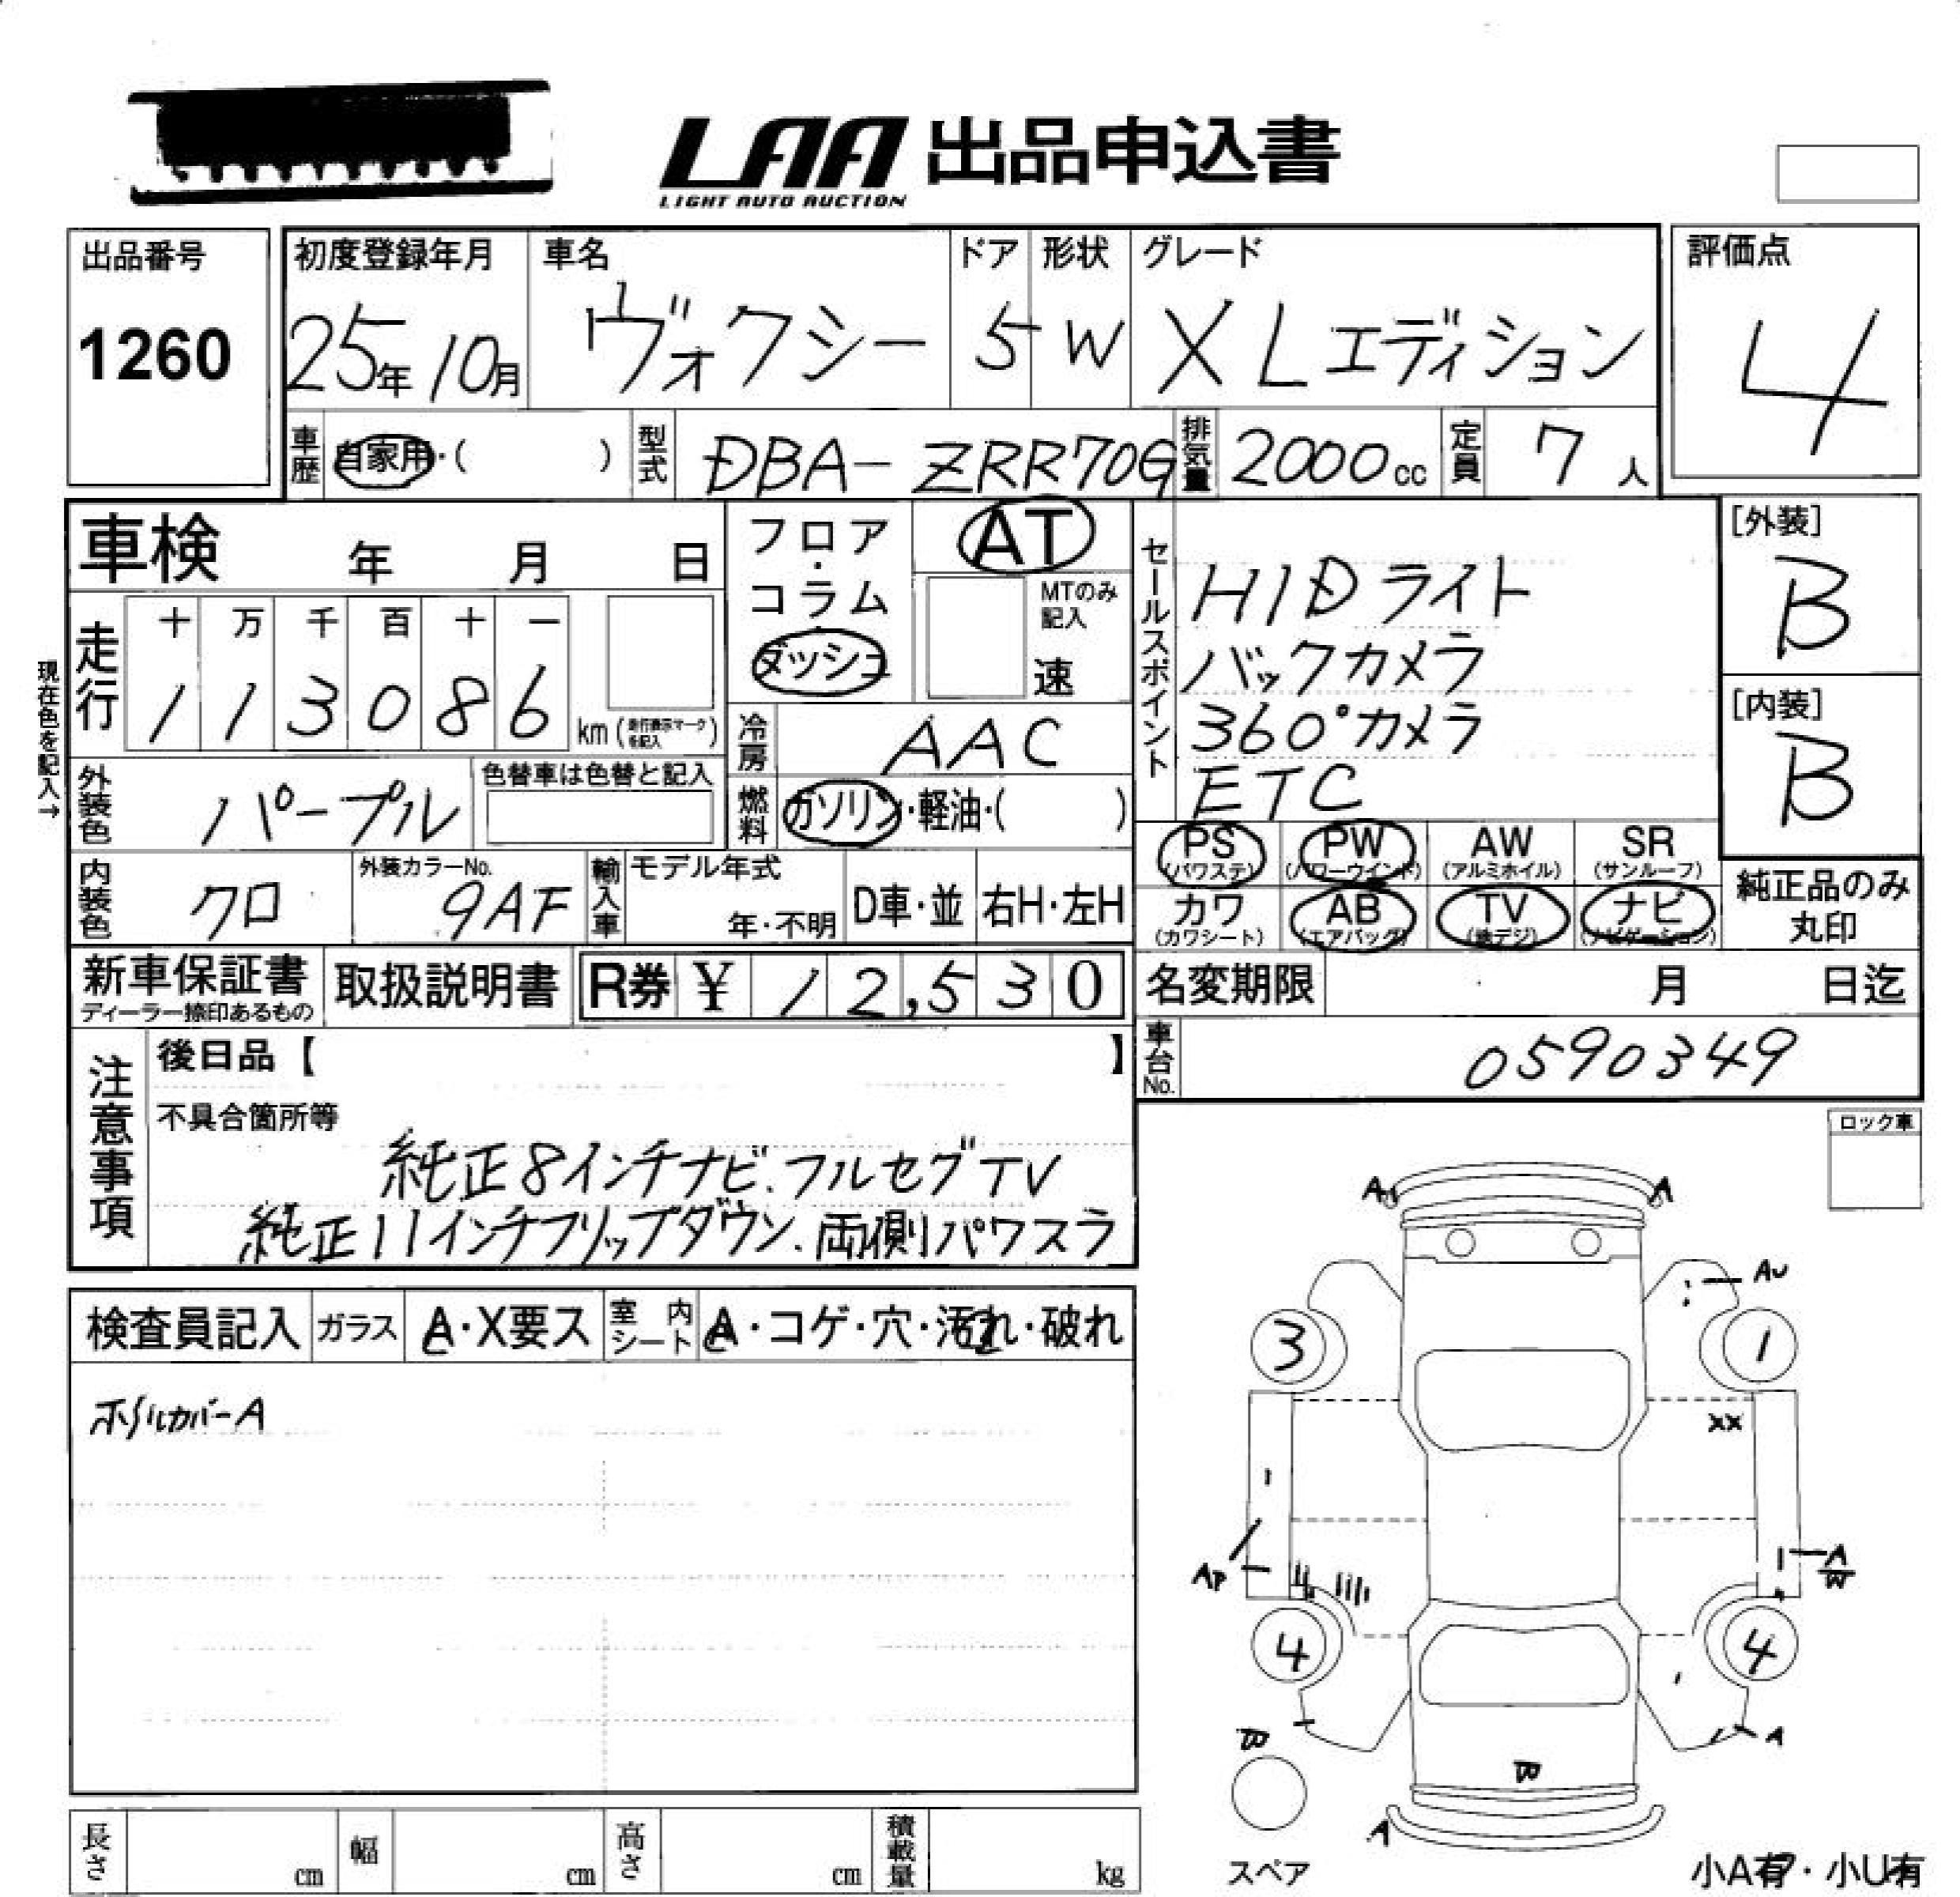 LAA 出品申込書
LIGHT AUTO AUCTION
出品番号
1260
初度登録年月
25年10月
車名
ヴォクシー
ドア
5
形状
W
グレード
X Lエディション
評価点
4
車歴 自家用・( )
型式 DBA-ZRR70G
排気量 2000cc
定員 7人
車検 年 月 日
フロア・コラム・ダッシュ
AT
MTのみ記入
速
現在色を記入→
走行
十 万 千 百 十 一
1 1 3 0 8 6 km (走行表示マークを記入)
冷房 AAC
外装色 パープル
色替車は色替と記入
燃料 ガソリン・軽油・( )
内装色 クロ
外装カラーNo. 9AF
輸入車 モデル年式
年・不明
D車・並
右H・左H
セールスポイント
HIDライト
バックカメラ
360°カメラ
ETC
[外装]
B
[内装]
B
PS (パワステ)
PW (パワーウインド)
AW (アルミホイル)
SR (サンルーフ)
カワ (カワシート)
AB (エアバッグ)
TV (地デジ)
ナビ (ナビゲーション)
純正品のみ丸印
新車保証書
ディーラー捺印あるもの
取扱説明書
R券 ¥ 12,530
名変期限 月 日迄
車台No. 0590349
注意事項
後日品【 】
不具合箇所等
純正8インチナビ.フルセグTV
純正11インチフリップダウン.両側パワスラ
ロック車
検査員記入
ガラス A・X要ス
室内シート A・コゲ・穴・汚れ・破れ
ホイルカバーA
A A
AU
3 1
XX
AP
A
W
4 4
A
A
スペア
小A有・小U有
長さ cm
幅 cm
高さ cm
積載量 kg